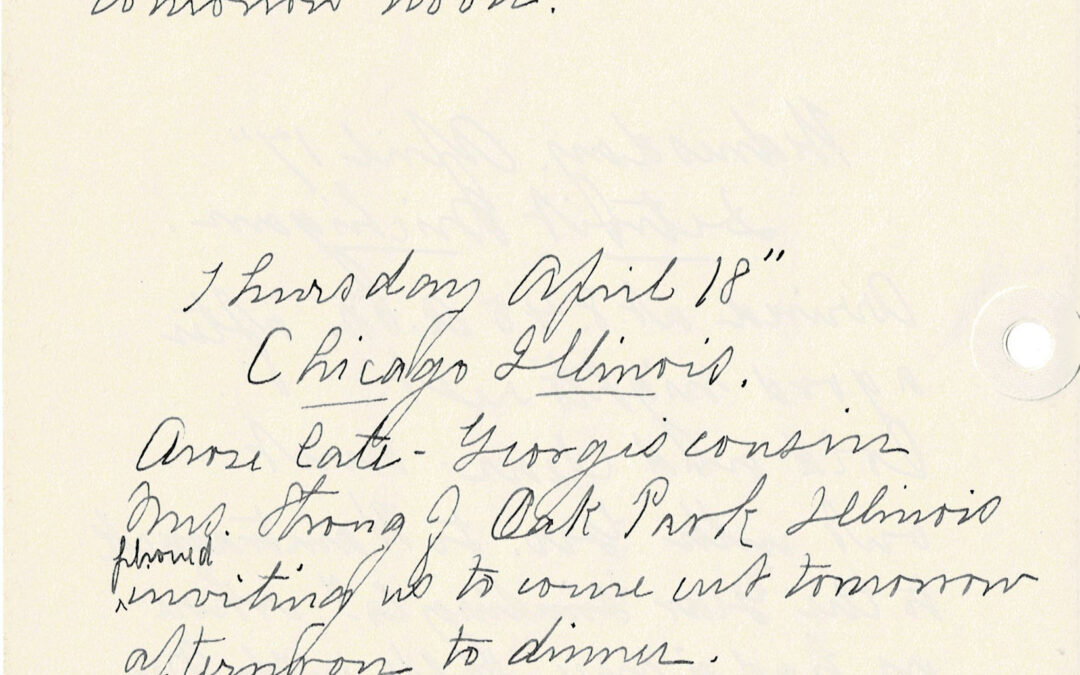 tomorrow noon.
Thursday April 18"
Chicago Illinois.
Arose late - Georges cousin
Mrs. Strong of Oak Park Illinois
phoned
inviting us to come out tomorrow
afternoon to dinner.